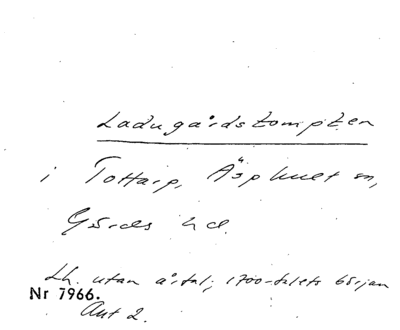 Ladugårdstompten
i Tottarp, Äsphult sn,
Gärds hd.
Lh. utan årtal; 1700-talets början
Nr 7966.
Akt 2.